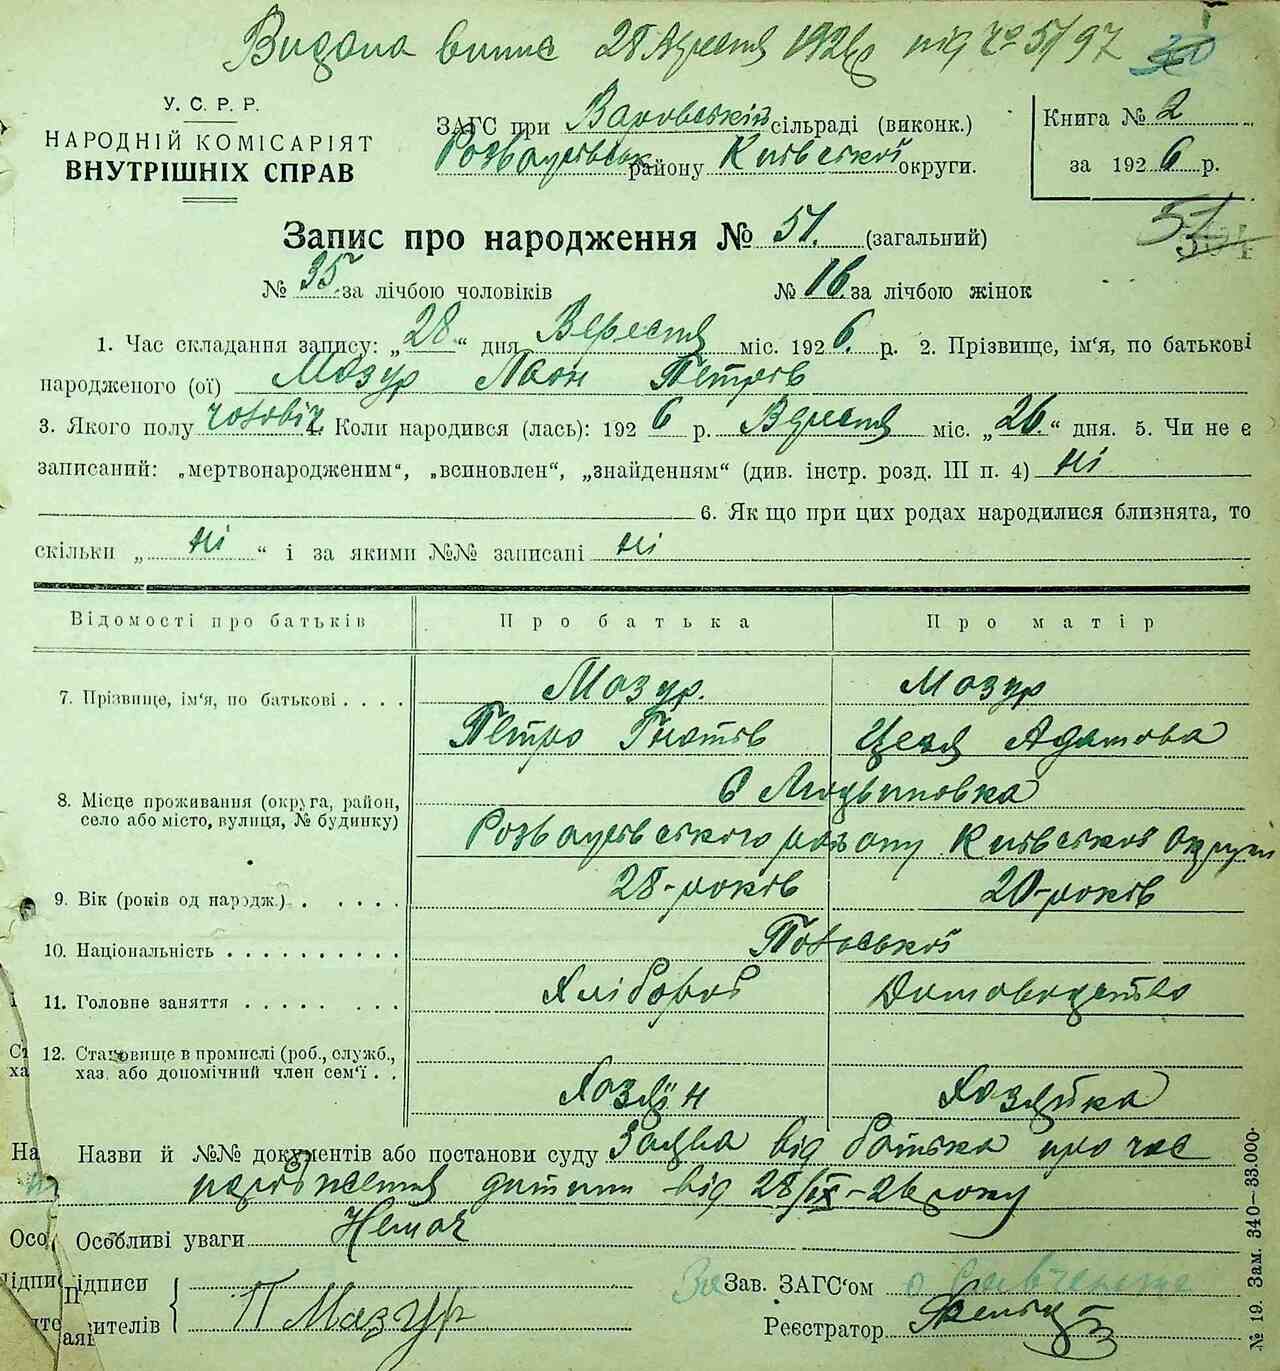 Видана випис 28 Вересня 1926 р під № 51/97
У. С. Р. Р.
НАРОДНІЙ КОМІСАРІЯТ
ВНУТРІШНІХ СПРАВ
ЗАГС при Варовській сільраді (виконк.)
Розважівськ району Київської округи.
Книга № 2
за 1926 р.
Запис про народження № 51. (загальний)
51
№ 35 за лічбою чоловіків № 16 за лічбою жінок
1. Час складання запису: „28“ дня Вересня міс. 1926. р. 2. Прізвище, ім‘я, по батькові
народженого (ої) Мазур Леон Петров
3. Якого полу чоловіч 4. Коли народився (лась): 1926 р. Вересня міс. „26.“ дня. 5. Чи не є
записаний: „мертвонародженим“, „всиновлен“, „знайденням“ (див. інстр. розд. III п. 4) ні
6. Як що при цих родах народилися близнята, то
скільки „ ні “ і за якими №№ записані ні
Відомості про батьків Про батька Про матір
7. Прізвище, ім‘я, по батькові . . . . Мазур. Мазур
Петро Гнатів Цезя Адамова
8. Місце проживання (округа, район,
село або місто, вулиця, № будинку)
С Людвиновка
Розважівського району Київської округи
9. Вік (років од народж.) . . . . . 28-років 20-років
10. Національність . . . . . . . . . . Польської
11. Головне заняття . . . . . . . . Хлібороб Домоводство
12. Становище в промислі (роб., служб.,
хаз. або допомічний член сем‘ї . .
Хозяїн Хозяйка
Назви й №№ документів або постанови суду Заява від батька про час
народження дитини від 28/IX-26 року
Особливі уваги Немає
Підписи
заявителів
П Мазур
За Зав. ЗАГС‘ом
Реєстратор
№ 19. Зам. 340—33.000.